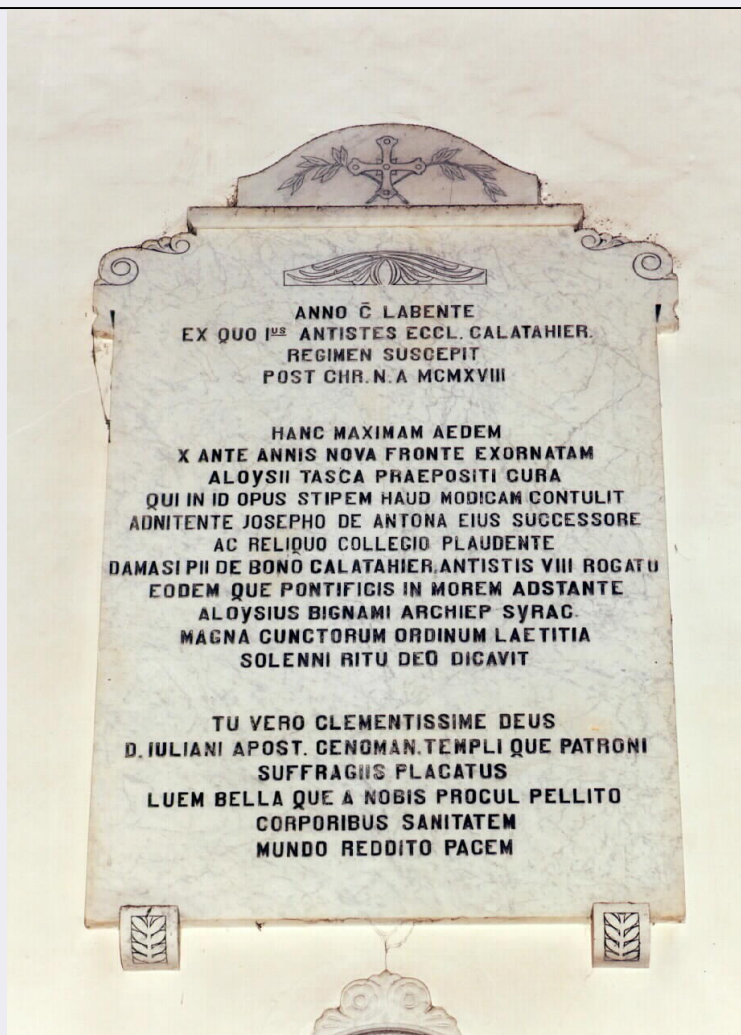 ANNO C̄ LABENTE
EX QUO Iᵘˢ ANTISTES ECCL. CALATAHIER.
REGIMEN SUSCEPIT
POST CHR. N. A MCMXVIII
HANC MAXIMAM AEDEM
X ANTE ANNIS NOVA FRONTE EXORNATAM
ALOYSII TASCA PRAEPOSITI CURA
QUI IN ID OPUS STIPEM HAUD MODICAM CONTULIT
ADNITENTE JOSEPHO DE ANTONA EIUS SUCCESSORE
AC RELIQUO COLLEGIO PLAUDENTE
DAMASI PII DE BONO CALATAHIER. ANTISTIS VIII ROGATU
EODEM QUE PONTIFICIS IN MOREM ADSTANTE
ALOYSIUS BIGNAMI ARCHIEP SYRAC.
MAGNA CUNCTORUM ORDINUM LAETITIA
SOLENNI RITU DEO DICAVIT
TU VERO CLEMENTISSIME DEUS
D. IULIANI APOST. CENOMAN. TEMPLI QUE PATRONI
SUFFRAGIIS PLACATUS
LUEM BELLA QUE A NOBIS PROCUL PELLITO
CORPORIBUS SANITATEM
MUNDO REDDITO PACEM